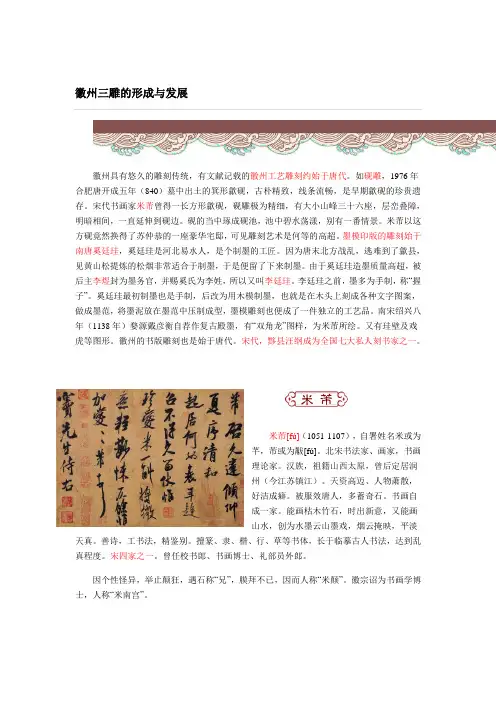 徽州三雕的形成与发展
徽州具有悠久的雕刻传统，有文献记载的徽州工艺雕刻约始于唐代。如砚雕，1976 年
合肥唐开成五年（840）墓中出土的箕形歙砚，古朴精致，线条流畅，是早期歙砚的珍贵遗
存。宋代书画家米芾曾得一长方形歙砚，砚雕极为精细，有大小山峰三十六座，层峦叠障，
明暗相间，一直延伸到砚边。砚的当中琢成砚池，池中碧水荡漾，别有一番情景。米芾以这
方砚竟然换得了苏仲恭的一座豪华宅邸，可见雕刻艺术是何等的高超。墨模印版的雕刻始于
南唐奚廷珪，奚廷珪是河北易水人，是个制墨的工匠。因为唐末北方战乱，逃难到了歙县，
见黄山松提炼的松烟非常适合于制墨，于是便留了下来制墨。由于奚廷珪造墨质量高超，被
后主李煜封为墨务官，并赐奚氏为李姓，所以又叫李廷珪。李廷珪之前，墨多为手制，称“握
子”。奚廷珪最初制墨也是手制，后改为用木模制墨，也就是在木头上刻成各种文字图案，
做成墨范，将墨泥放在墨范中压制成型，墨模雕刻也便成了一件独立的工艺品。南宋绍兴八
年（1138 年）婺源戴彦衡自荐作复古殿墨，有“双角龙”图样，为米芾所绘。又有珪璧及戏
虎等图形。徽州的书版雕刻也是始于唐代。宋代，黟县汪纲成为全国七大私人刻书家之一。
米 芾
米芾[fú]（1051-1107），自署姓名米或为
芊，芾或为黻[fú]。北宋书法家、画家，书画
理论家。汉族，祖籍山西太原，曾后定居润
州（今江苏镇江）。天资高迈、人物萧散，
好洁成癖。被服效唐人，多蓄奇石。书画自
成一家。能画枯木竹石，时出新意，又能画
山水，创为水墨云山墨戏，烟云掩映，平淡
天真。善诗，工书法，精鉴别。擅篆、隶、楷、行、草等书体，长于临摹古人书法，达到乱
真程度。宋四家之一。曾任校书郎、书画博士、礼部员外郎。
因个性怪异，举止颠狂，遇石称“兄”，膜拜不已，因而人称“米颠”。徽宗诏为书画学博
士，人称“米南宫”。